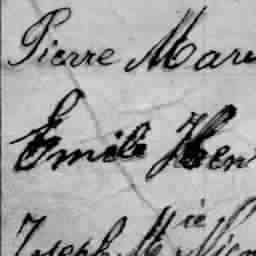 Pierre Mar
Emile Hen
Joseph M ie